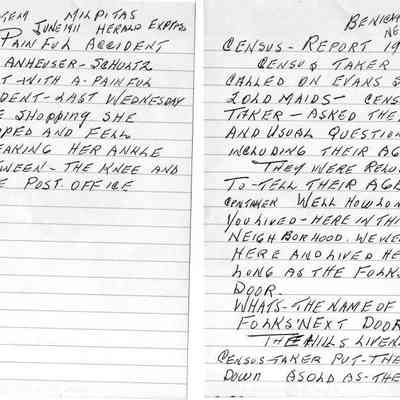 TEM MILPITAS
JUNE 1911 HERALD EXPRESS
PAINFUL ACCIDENT
ANHEUSER-SCHULTZ
T WITH A-PAINFUL
DENT-LAST WEDNESDAY
E SHOPPING SHE
PPED AND FELL
EAKING HER ANKLE
TWEEN-THE KNEE AND
E POST OFFICE
BENICI
NE
CENSUS-REPORT 19
CENSUS TAKER
CALLED ON EVANS S
2 OLD MAIDS- CENS
TAKER-ASKED THE
AND USUAL QUESTION
INCLUDING THEIR AG
THEY WERE RELU
TO-TELL THEIR AGE
CENTAKER WELL HOW LON
YOU LIVED-HERE IN THI
NEIGHBORHOOD. WE WE
HERE AND LIVED HE
LONG AS THE FOLKS
DOOR.
WHATS-THE NAME OF
FOLKS' NEXT DOOR
THE HILLS LIVEN
CENSUS-TAKER PUT-THE
DOWN AS OLD AS-THE